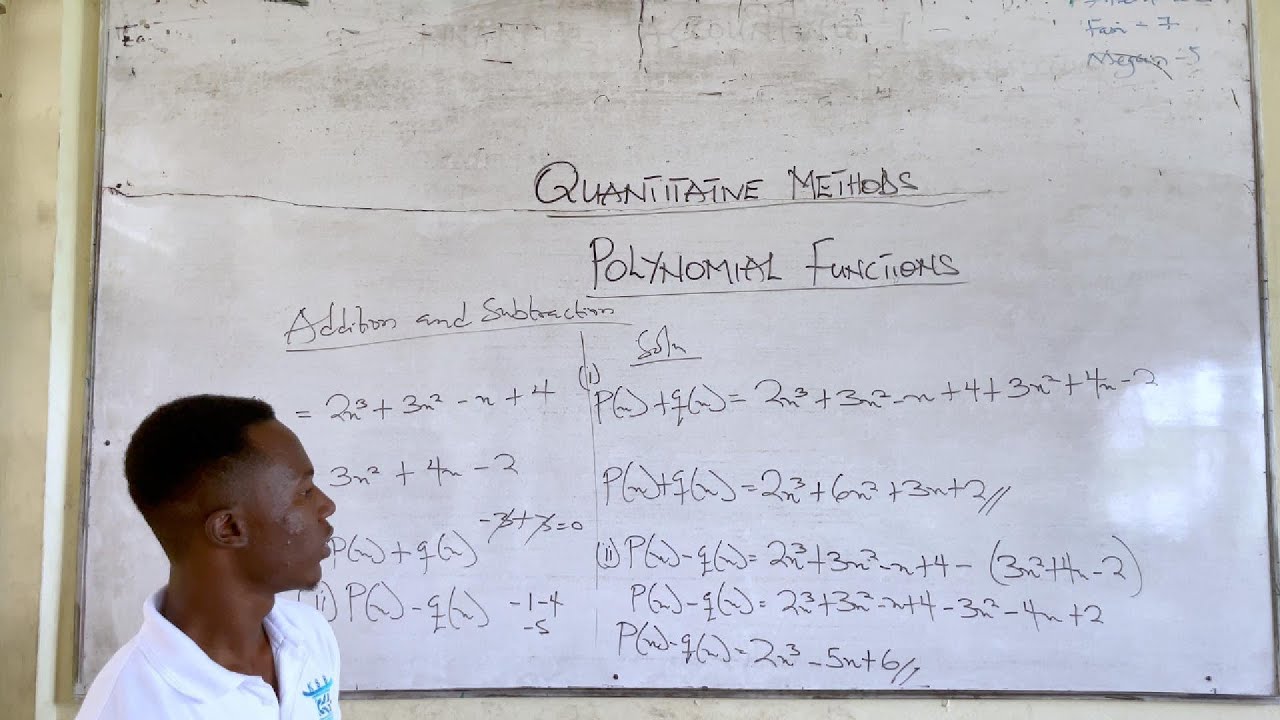 Fair - 7
Megan - 5
QUANTITATIVE METHODS
POLYNOMIAL FUNCTIONS
Addition and Subtraction
= 2x³ + 3x² - x + 4
3x² + 4x - 2
P(x) + q(x)
(ii) P(x) - q(x)
-3 + 3 = 0
-1 - 4
-5
Soln
(i)
P(x) + q(x) = 2x³ + 3x² - x + 4 + 3x² + 4x - 2
P(x) + q(x) = 2x³ + 6x² + 3x + 2//
(ii) P(x) - q(x) = 2x³ + 3x² - x + 4 - (3x² + 4x - 2)
P(x) - q(x) = 2x³ + 3x² - x + 4 - 3x² - 4x + 2
P(x) - q(x) = 2x³ - 5x + 6//